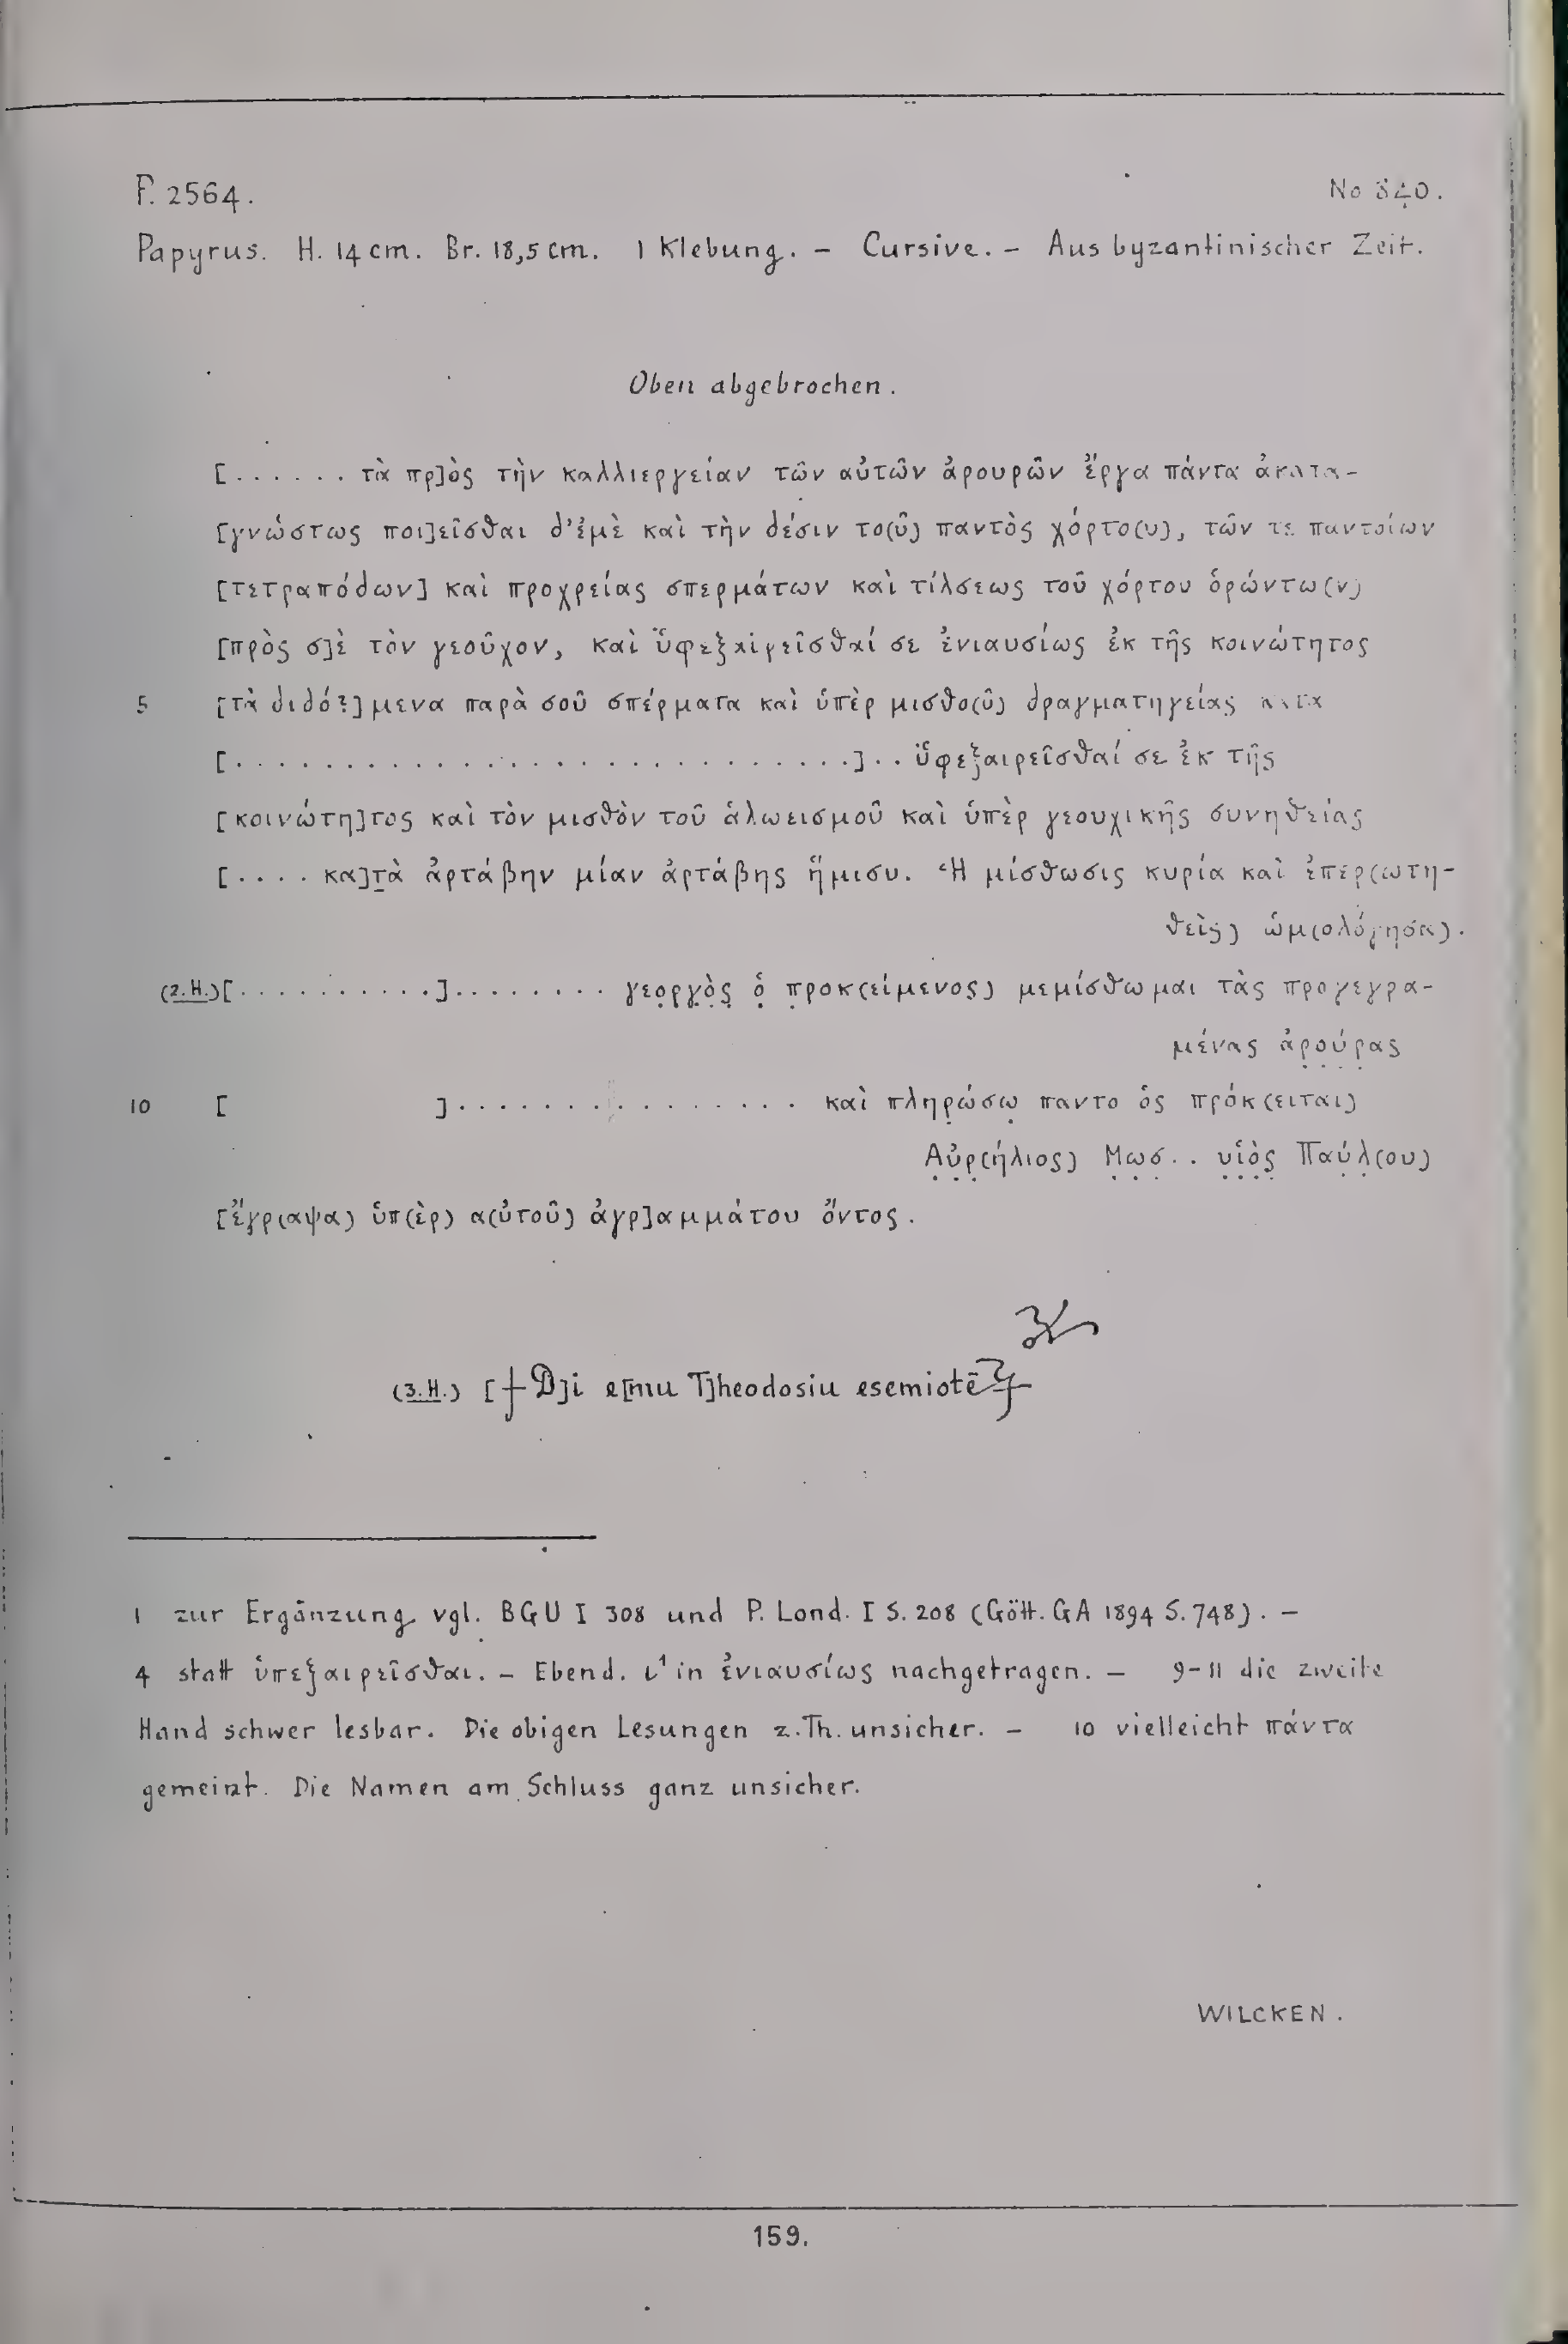 P. 2564.
No 840.
Papyrus. H. 14 cm. Br. 18,5 cm. 1 Klebung. – Cursive. – Aus byzantinischer Zeit.
Oben abgebrochen.
[. . . . . . τὰ πρ]ὸς τὴν καλλιεργείαν τῶν αὐτῶν ἀρουρῶν ἔργα πάντα ἀκατα-
[γνώστως ποι]εῖσθαι δ’ἐμὲ καὶ τὴν δέσιν το(ῦ) παντὸς χόρτο(υ), τῶν τε παντοίων
[τετραπόδων] καὶ προχρείας σπερμάτων καὶ τίλσεως τοῦ χόρτου ὁρώντω(ν)
[πρὸς σ]ὲ τὸν γεοῦχον, καὶ ὕφεξαιρεῖσθαί σε ἐνιαυσίως ἐκ τῆς κοινώτητος
5 [τὰ διδό?]μενα παρὰ σοῦ σπέρματα καὶ ὑπὲρ μισθο(ῦ) δραγματηγείας κατα
[. . . . . . . . . . . . . . . . . . . . . . . . . . . .] . . ὕφεξαιρεῖσθαί σε ἐκ τῆς
[κοινώτη]τος καὶ τὸν μισθὸν τοῦ ἁλωεισμοῦ καὶ ὑπὲρ γεουχικῆς συνηθείας
[. . . . κα]τὰ ἀρτάβην μίαν ἀρτάβης ἥμισυ. Ἡ μίσθωσις κυρία καὶ ἐπερ(ωτη-
θεὶς) ὡμ(ολόγησα).
(2. H.) [. . . . . . . . . .] . . . . . . . . γεοργὸς ὁ προκ(είμενος) μεμίσθωμαι τὰς προγεγρα-
μένας ἀρούρας
10 [ ] . . . . . . . . . . . . . . . . καὶ πληρώσω παντο ὁς πρόκ(ειται)
Αὐρ(ήλιος) Μωσ . . υἱὸς Παύλ(ου)
[ἔγρ(αψα) ὑπ(ὲρ) α(ὐτοῦ) ἀγρ]αμμάτου ὄντος.
(3. H.) [† D]i e[mu T]heodosiu esemiotē
1 zur Ergänzung vgl. BGU I 308 und P. Lond. I S. 208 (Gött. GA 1894 S. 748). –
4 statt ὑπεξαιρεῖσθαι. – Ebend. ι in ἐνιαυσίως nachgetragen. – 9–11 die zweite
Hand schwer lesbar. Die obigen Lesungen z. Th. unsicher. – 10 vielleicht πάντα
gemeint. Die Namen am Schluss ganz unsicher.
WILCKEN.
159.